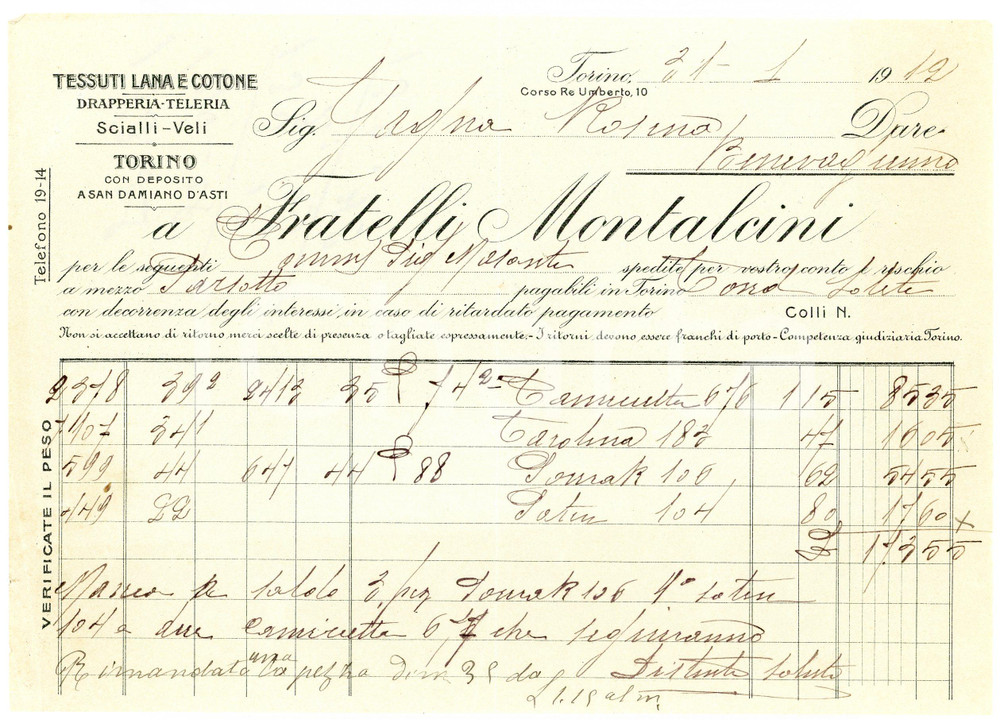 TESSUTI LANA E COTONE
DRAPPERIA-TELERIA
Scialli-Veli
TORINO
CON DEPOSITO
A SAN DAMIANO D'ASTI
Telefono 19-14
Torino, 31 - 1 1912
Corso Re Umberto, 10
Sig. Rosina Dare
a Fratelli Montalcini
per le seguenti spedite per vostro conto e rischio
a mezzo pagabili in Torino solite
con decorrenza degli interessi in caso di ritardato pagamento Colli N.
Non si accettano di ritorno merci scelte di presenza o tagliate espressamente.- I ritorni devono essere franchi di porto - Competenza giudiziaria Torino.
VERIFICATE IL PESO
2378 39² 2413 35 74² Camicetta 676 115 8535
1107 34¹ Carolina 183 47 1605
599 44 647 44 88 106 62 5455
449 22 Satin 104 80 1760 x
17355
Manca a saldo 3 pez 126 1º satin
104 e due camicette 67 che seguiranno
Rimandata una pezza di m 35 da Distinti saluti
L 1.15 al m.